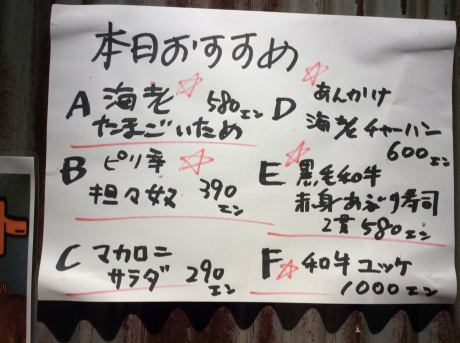 本日おすすめ
A 海老 580エン
たまごいため
B ピリ辛
担々奴 390エン
C マカロニ
サラダ 290エン
D あんかけ
海老チャーハン
600エン
E 黒毛和牛
赤身あぶり寿司
2貫 580エン
F 和牛ユッケ
1000エン